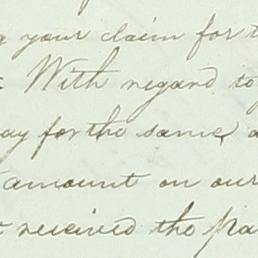 your claim for
With regard to
for the same,
amount on our
received the